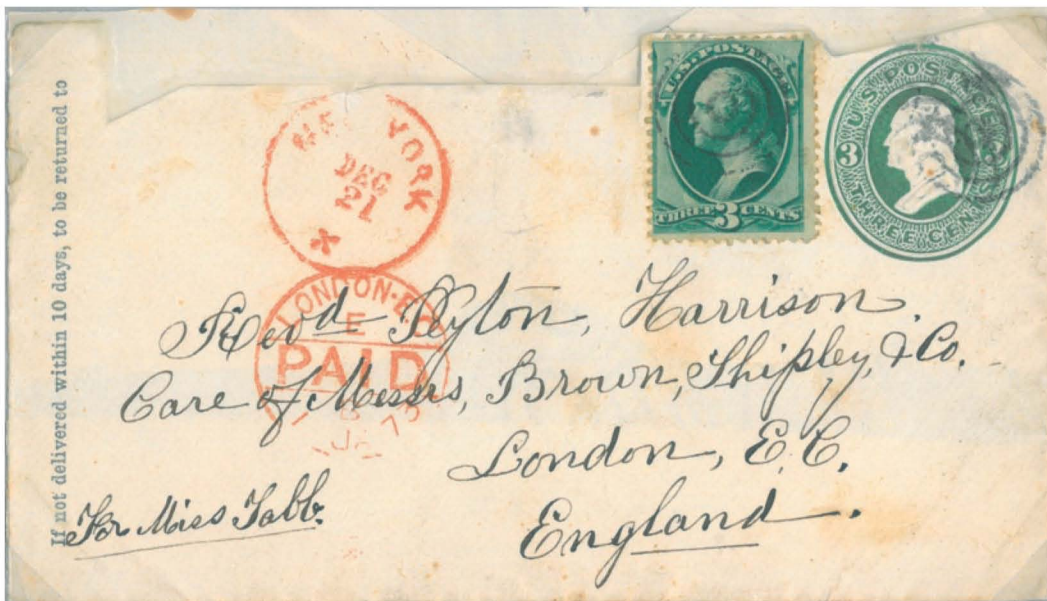 If not delivered within 10 days, to be returned to
NEW YORK
DEC
21
U.S. POSTAGE
THREE 3 CENTS
U.S. POSTAGE
3 3
THREE CENTS
LONDON-E.C
E
PAID
JA 73
Revd Peyton, Harrison.
Care of Messrs, Brown, Shipley, & Co.
London, E.C.
England.
For Miss Tabb.